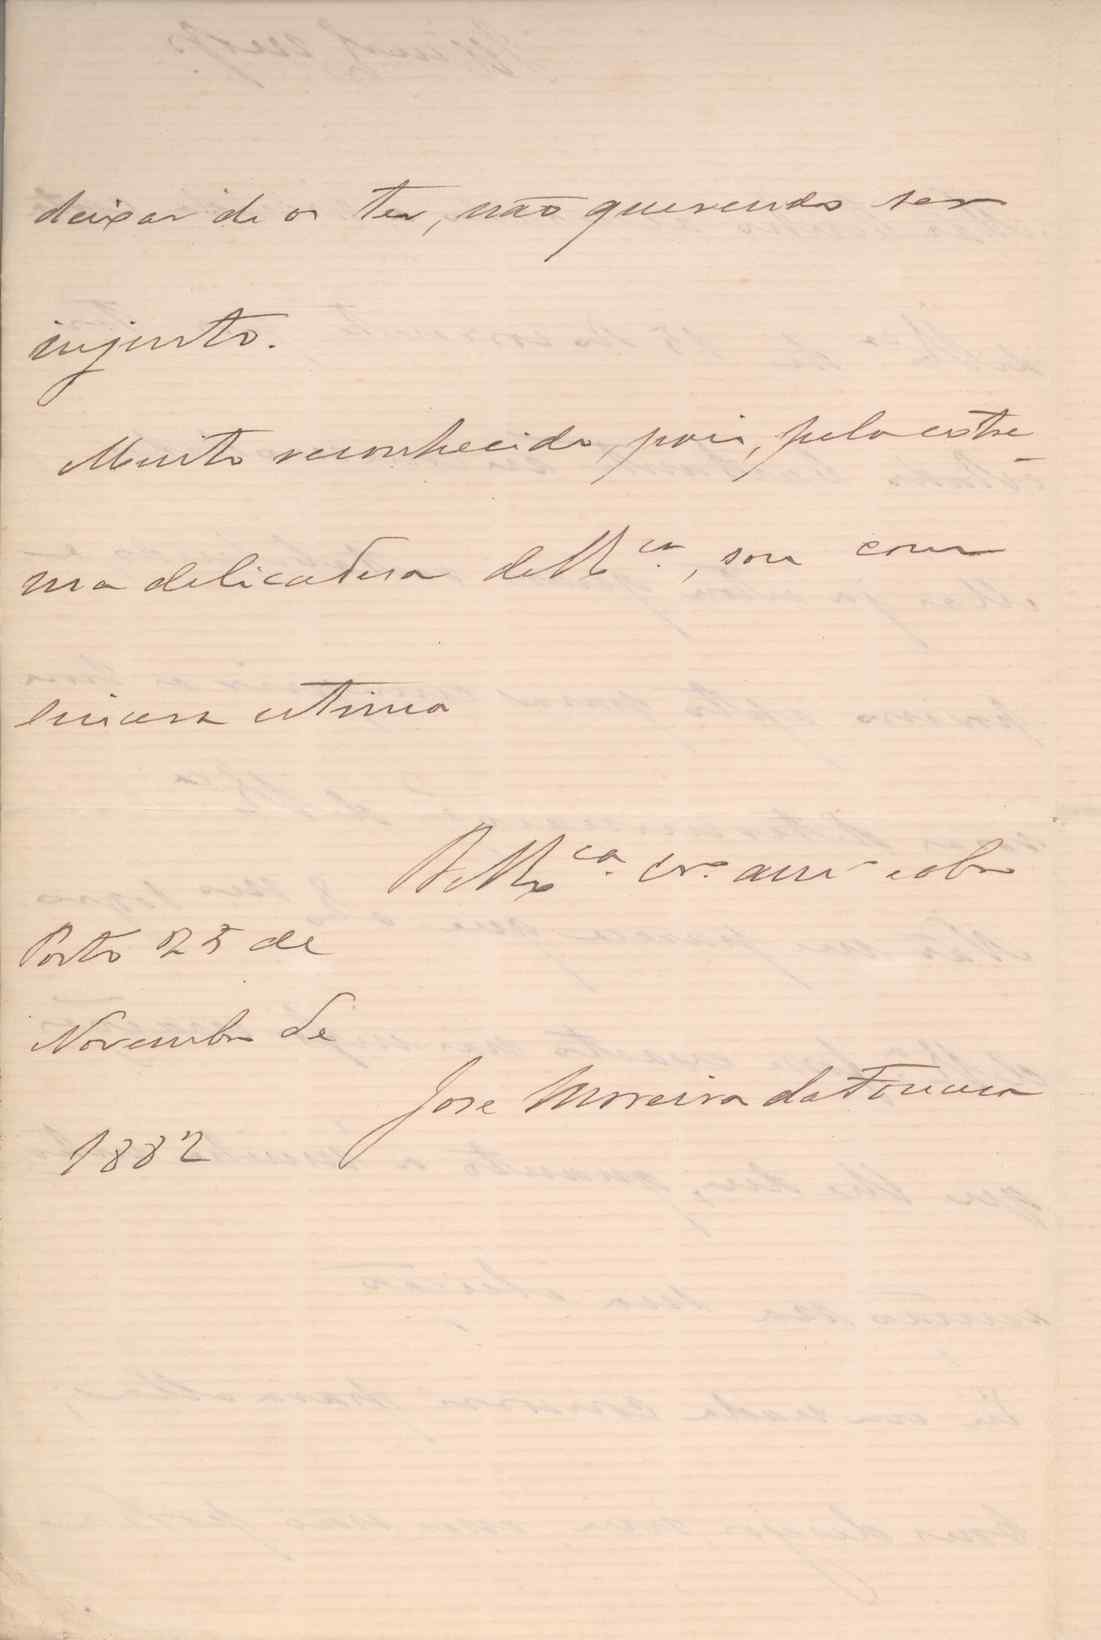 deixar de os ter, não querendo ser
injusto.
Muito reconhecido, pois, pela extre
ma delicadesa de V. Ex.cia, sou com
sincera estima
De V. Ex.cia
am.º e obr.º
Porto 25 de
Novembro de
José Moreira da Fonseca
1882